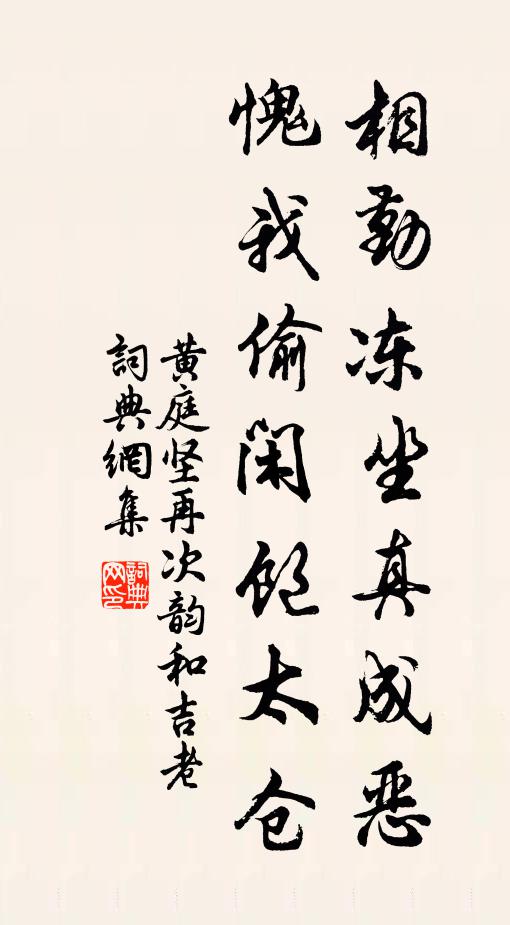 相勤冻坐真成恶
愧我偷闲饱太仓
黄庭坚再次韵和吉老
詞典網集
詞典網印